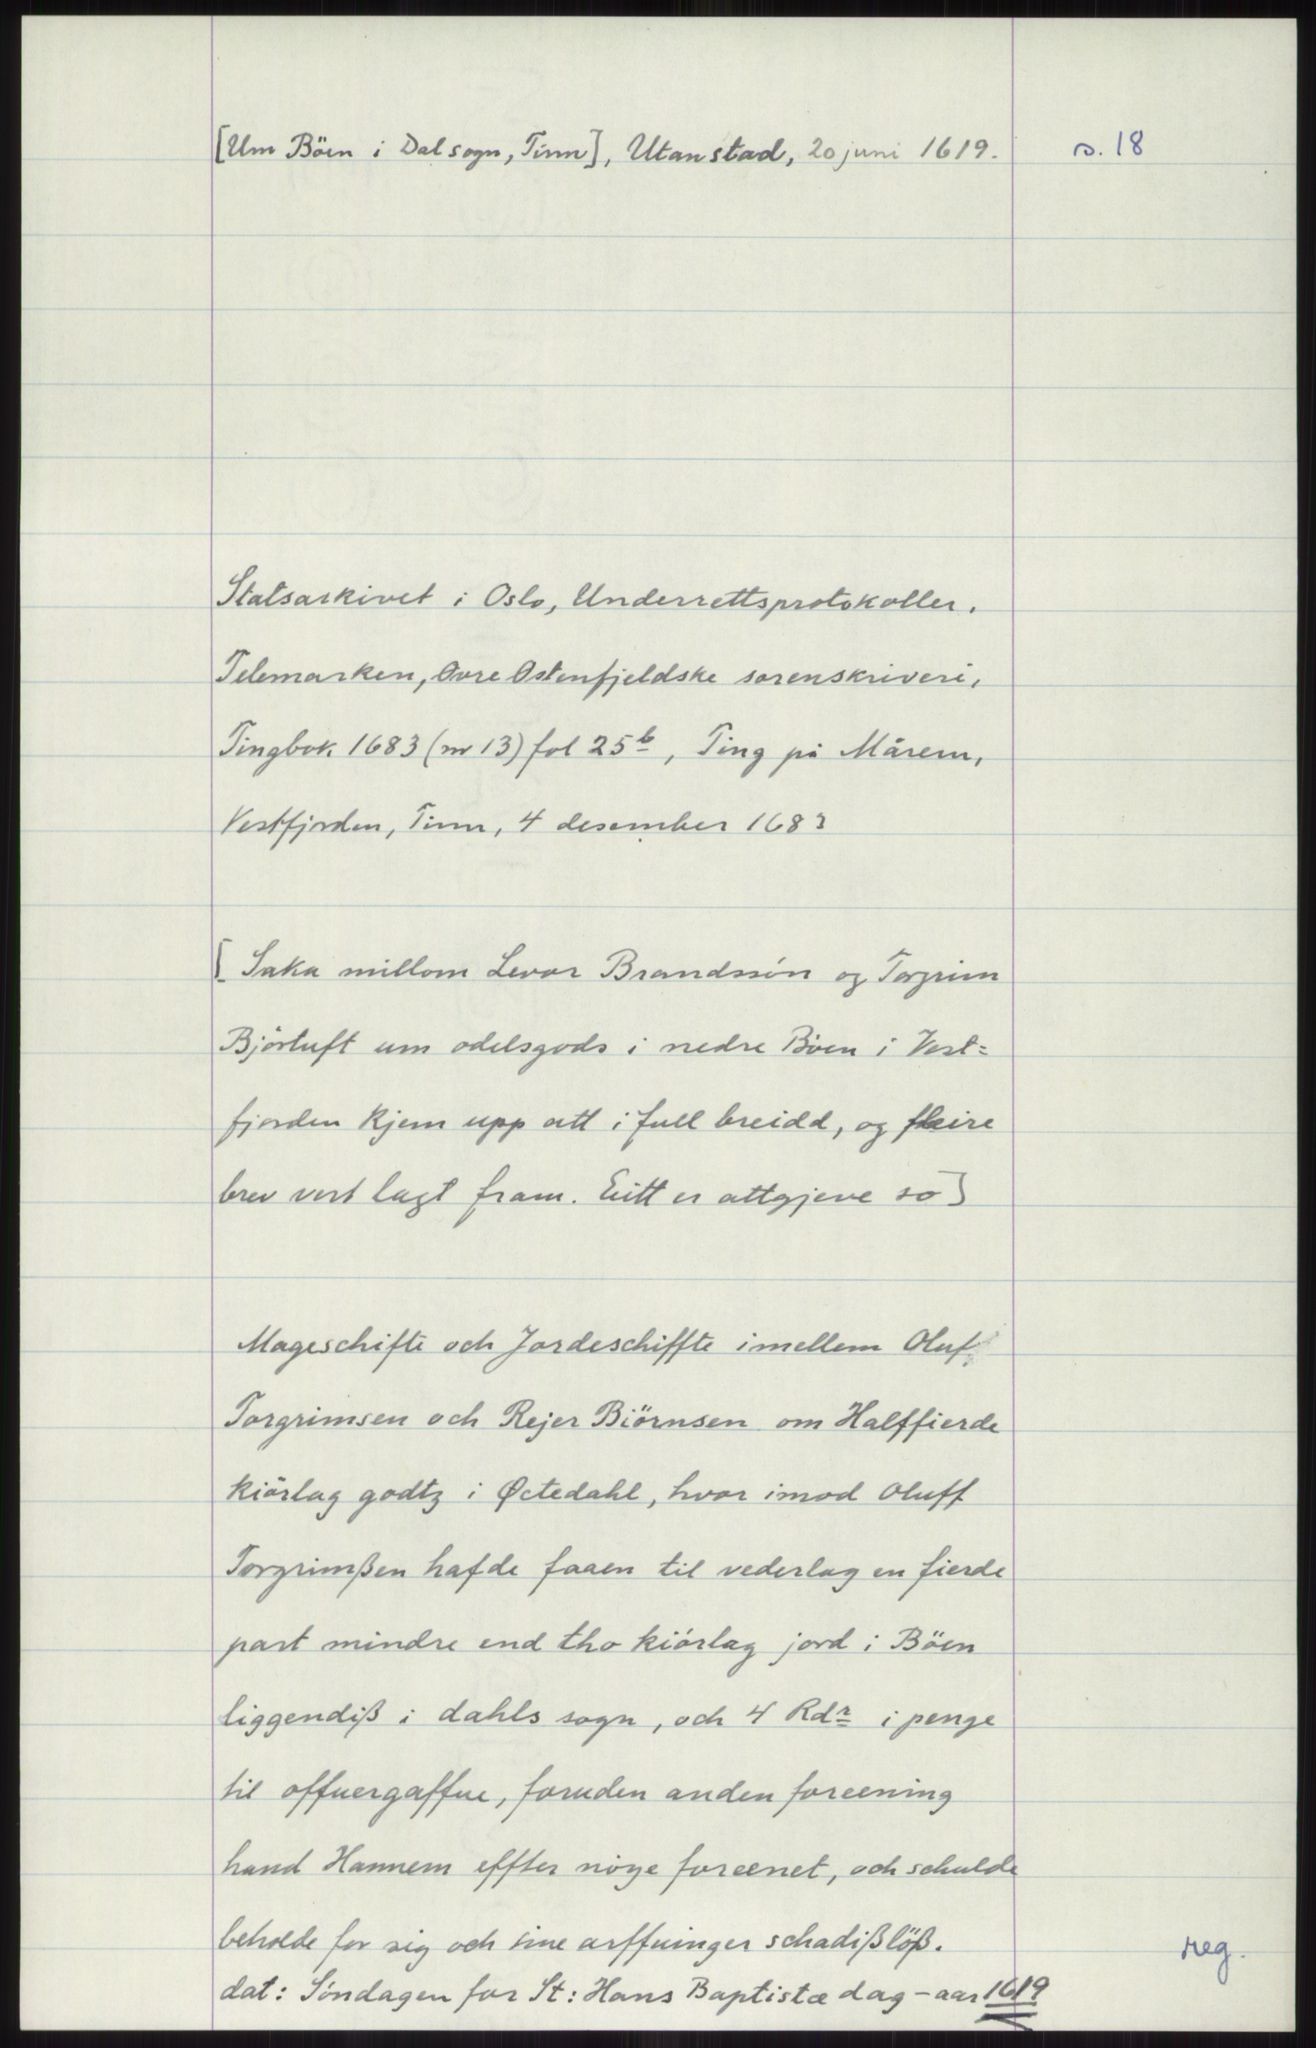 [Um Böen i Dal sogn, Tinn], Utan stad, 20 juni 1619.
s. 18
Statsarkivet i Oslo, Underrettsprotokoller.
Telemarken, Øvre Østenfjeldske sorenskriveri,
Tingbok 1683 (nr 13) fol 25b, Ting på Mårem,
Vestfjorden, Tinn, 4 desember 1683
[Saka millom Levor Brandssön og Torgrim
Björtuft um odelsgods i nedre Böen i Vest=
fjorden kjem upp att i full breidd, og fleire
brev vert lagt fram. Eitt er attgjeve so]
Mageschifte och Jordeschiffte imellem Oluf
Torgrimsen och Rejer Biörnsen om Halffierde
kiörlag godtz i Øctedahl, hvor imod Oluff
Torgrimßen hafde faaen til vederlag en fierde
part mindre end tho kiörlag jord i Böen
liggendiß i dahls sogn, och 4 Rdr i penge
til offuergaffue, foruden anden foreening
hand Hannem effter nöye foreenet, och schulde
beholde for sig och sine arffuinger schadißlöß.
reg.
dat: Söndagen for St: Hans Baptistæ dag - aar 1619